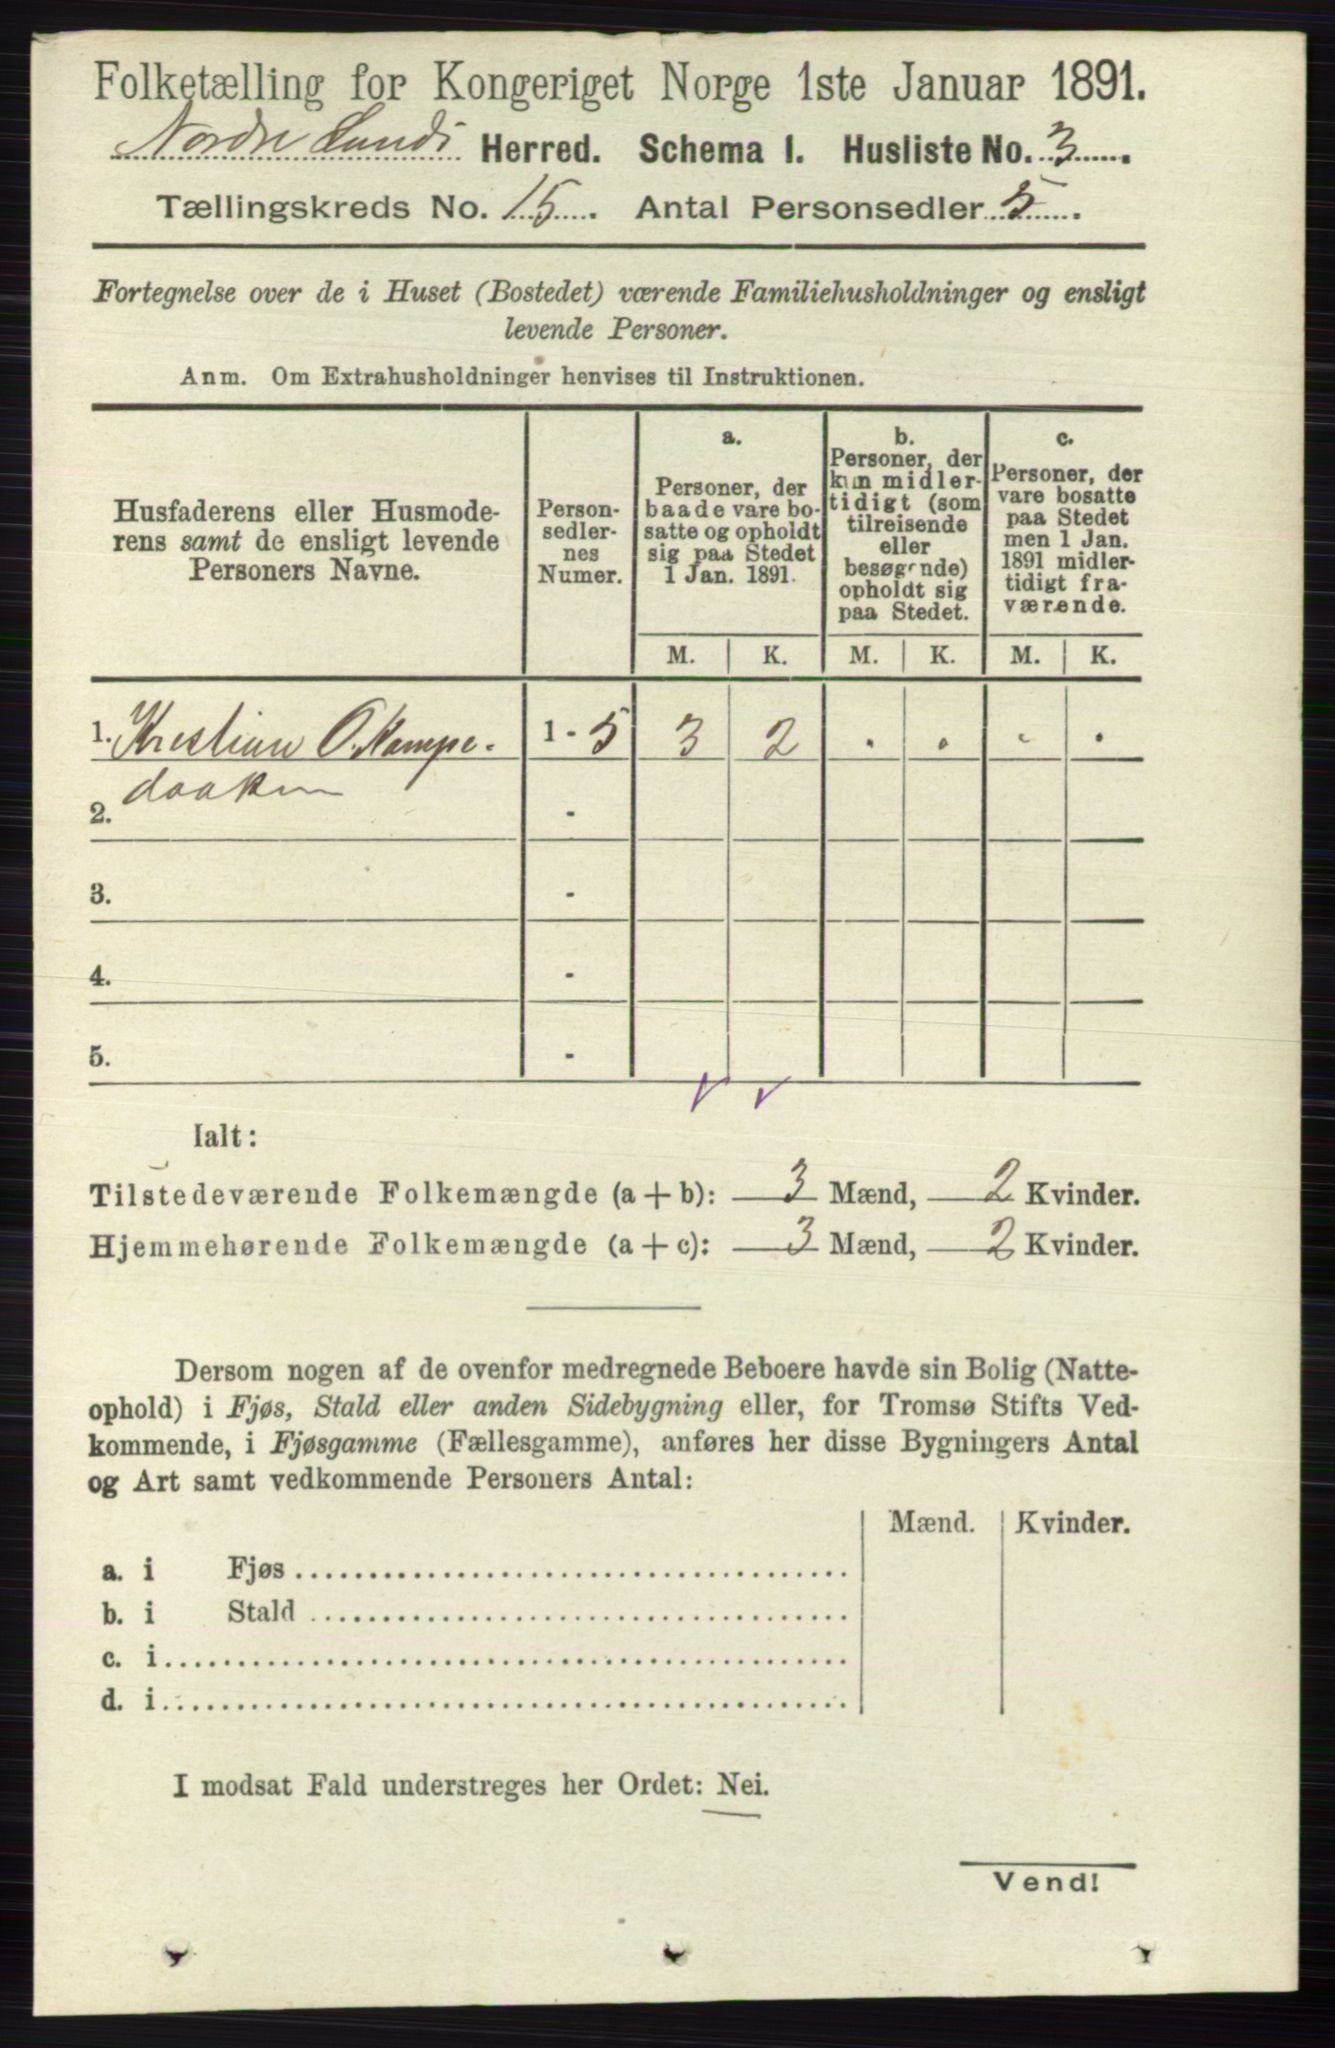 Folketælling for Kongeriget Norge 1ste Januar 1891.
Nordre Lands Herred. Schema 1. Husliste No. 3
Tællingskreds No. 15. Antal Personsedler 5
Fortegnelse over de i Huset (Bostedet) værende Familiehusholdninger og ensligt
levende Personer.
Anm. Om Extrahusholdninger henvises til Instruktionen.
Husfaderens eller Husmode-
rens samt de ensligt levende
Personers Navne.
Person-
sedler-
nes
Numer.
a.
Personer, der
baade vare bo-
satte og opholdt
sig paa Stedet
1 Jan. 1891.
b.
Personer, der
kun midler-
tidigt (som
tilreisende
eller
besøgende)
opholdt sig
paa Stedet.
c.
Personer, der
vare bosatte
paa Stedet
men 1 Jan.
1891 midler-
tidigt fra-
værende.
M. K. M. K. M. K.
1. Kristian O. Kampe- 1 - 5 3 2 . . . .
daaken
2. -
3. -
4. -
5. -
Ialt:
Tilstedeværende Folkemængde (a + b): 3 Mænd, 2 Kvinder.
Hjemmehørende Folkemængde (a + c): 3 Mænd, 2 Kvinder.
Dersom nogen af de ovenfor medregnede Beboere havde sin Bolig (Natte-
ophold) i Fjøs, Stald eller anden Sidebygning eller, for Tromsø Stifts Ved-
kommende, i Fjøsgamme (Fællesgamme), anføres her disse Bygningers Antal
og Art samt vedkommende Personers Antal:
Mænd. Kvinder.
a. i Fjøs
b. i Stald
c. i
d. i
I modsat Fald understreges her Ordet: Nei.
Vend!